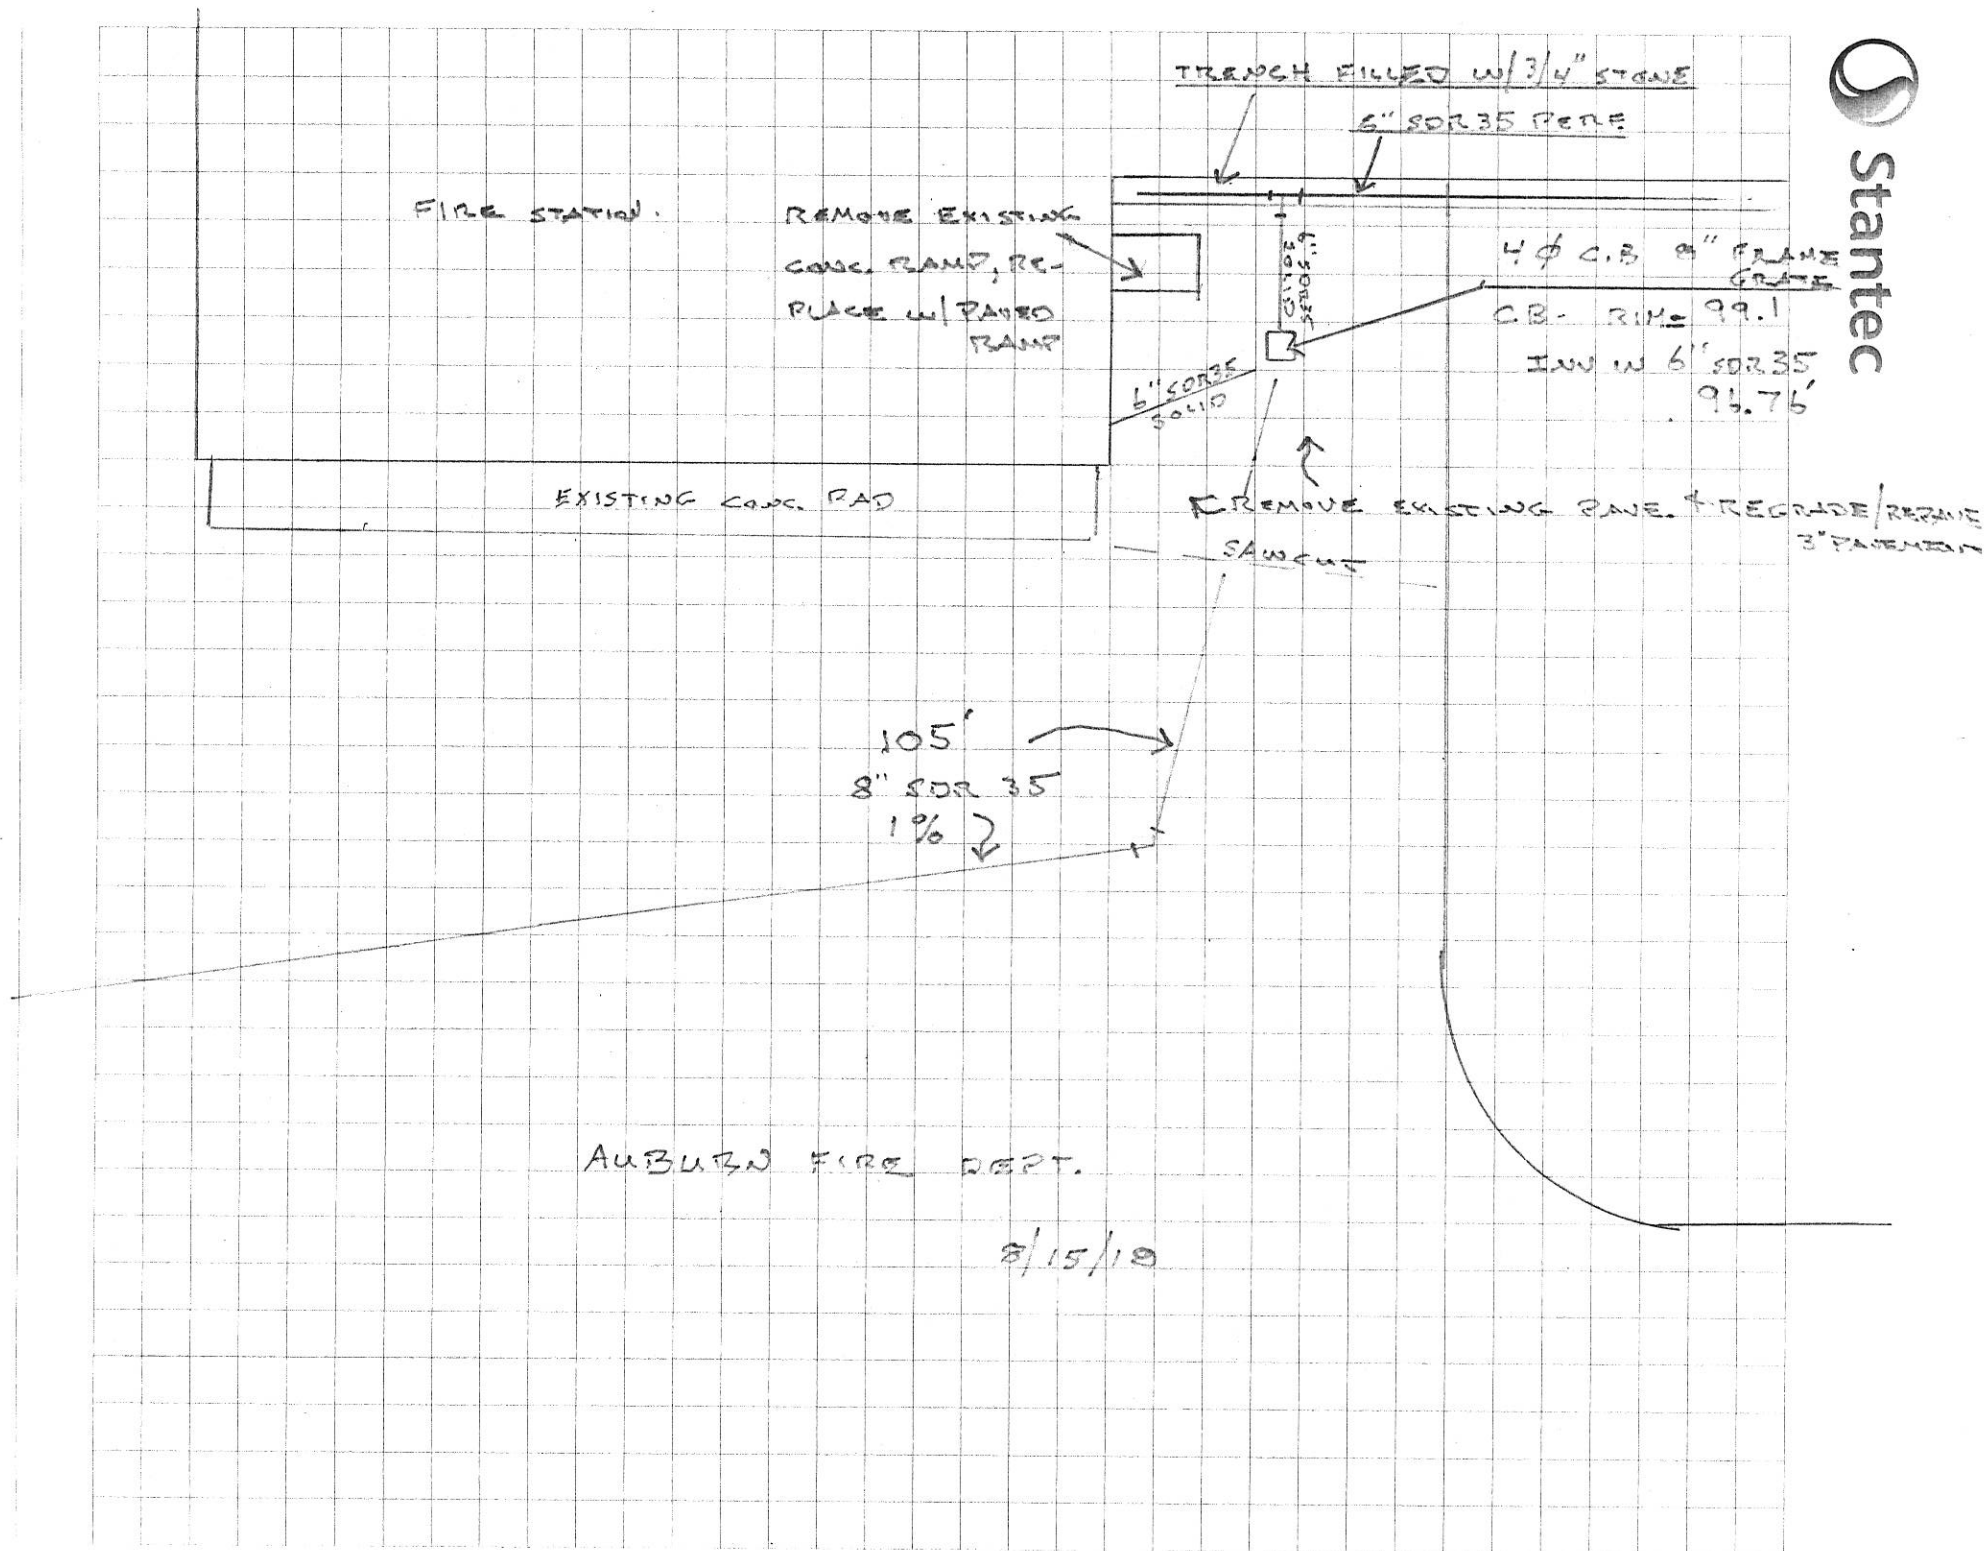 TRENCH FILLED W/ 3/4" STONE
6" SDR35 PERF
Stantec
FIRE STATION.
REMOVE EXISTING
CONC. RAMP, RE-
PLACE W/ PAVED
RAMP
6" SDR35
SOLID
4 Ø C.B 8" FRAME
GRATE
C.B- RIM= 99.1
INV IN 6" SDR35
96.76'
6" SDR35
SOLID
EXISTING CONC. PAD
REMOVE EXISTING PAVE. & REGRADE/REPAVE
3" PAVEMENT
SAWCUT
105'
8" SDR 35
1%
AUBURN FIRE DEPT.
8/15/18